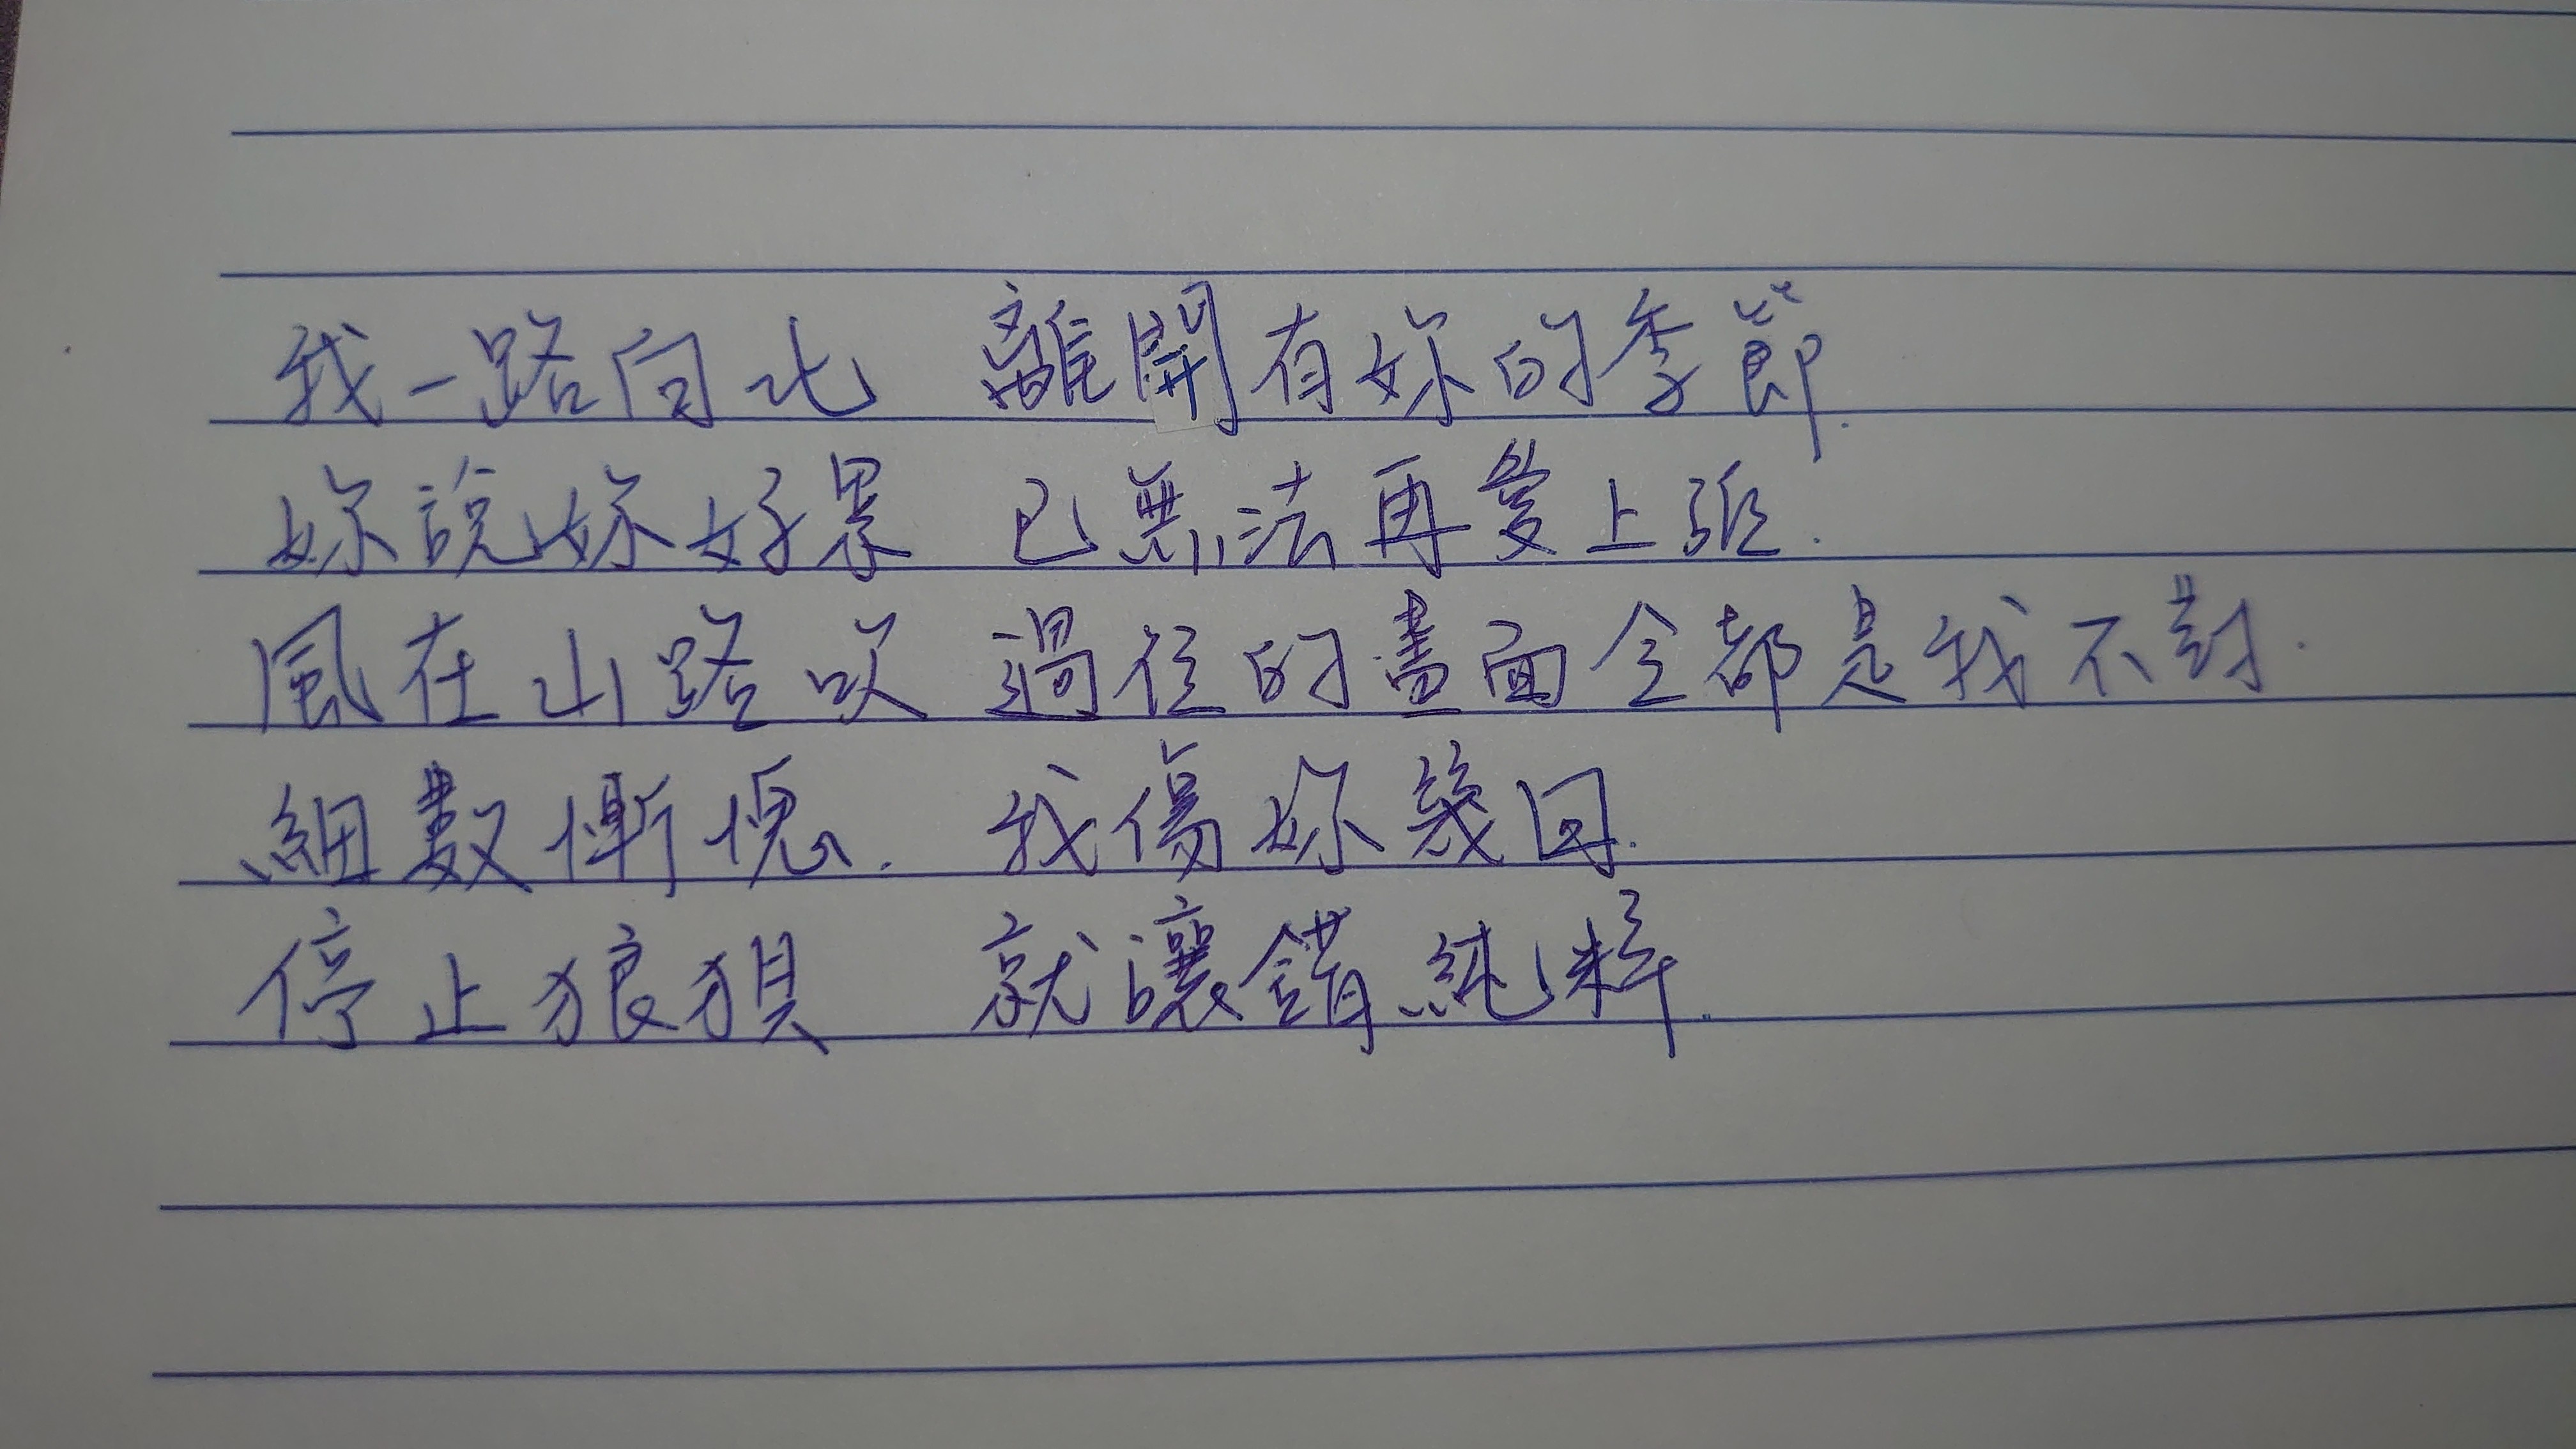 我一路向北 離開有妳的季節.
妳說妳好累 已無法再愛上誰.
風在山路吹 過往的畫面全都是我不對.
細數慚愧. 我傷妳幾回.
停止狼狽 就讓錯純粹.